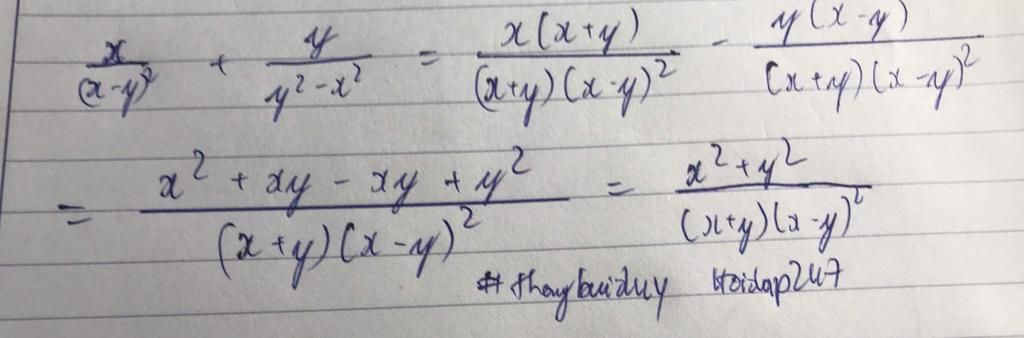 x/(x-y)² + y/(y²-x²) = x(x+y)/((x+y)(x-y)²) - y(x-y)/((x+y)(x-y)²)
= (x² + xy - xy + y²)/((x+y)(x-y)²) = (x²+y²)/((x+y)(x-y)²)
# thaybuiduy Hoidap247